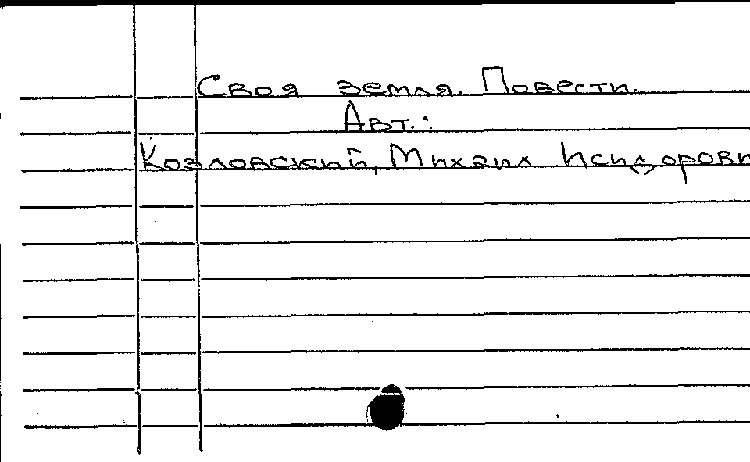 Своя земля. Повести.
Авт.:
Козловский, Михаил Исидорови